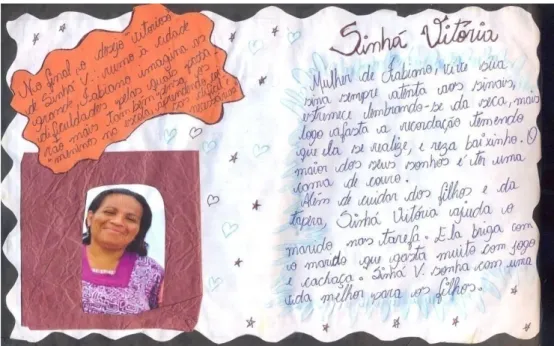 No final, o desejo vitorioso
de Sinhá V. rumo à cidade
grande. Fabiano imagina as
dificuldades pelas quais
não mais também
meninos na escola, aprendendo
Sinhá Vitória
Mulher de Fabiano, vive sua
sina sempre atenta aos sinais,
estremece lembrando-se da seca, mais
logo afasta a recordação temendo
que ela se realize, e reza baixinho. O
maior dos seus sonhos é ter uma
cama de couro.
Além de cuidar dos filhos e da
tapera, Sinhá Vitória ajuda o
marido nas tarefa. Ela briga com
o marido que gasta muito com jogo
e cachaça. Sinhá V. sonha com uma
vida melhor para os filhos.